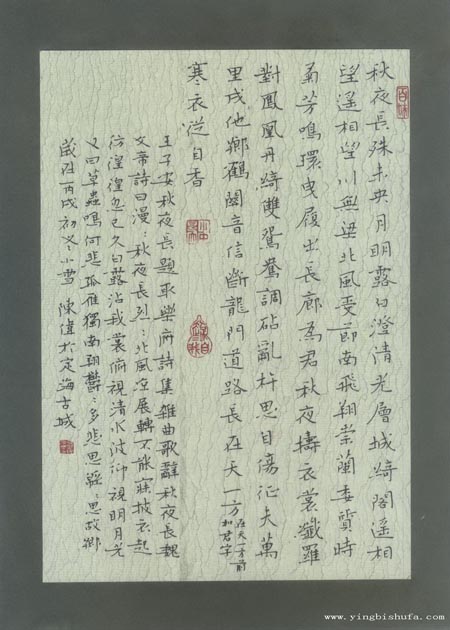 秋夜長殊未央月明露白澄清光層城綺閣遥相
望遥相望川無梁北風受節南飛翔崇蘭委質時
菊芳鳴環曳履出長廊為君秋夜擣衣裳纖羅
對鳳凰丹綺雙鴛鴦調砧亂杵思自傷征夫萬
里戍他鄉鶴關音信斷龍門道路長在天一方
在天一方前
加君字
寒衣從自香
王子安秋夜長題取樂府詩集雜曲歌辭秋夜長魏
文帝詩曰漫:秋夜長烈:北風涼展轉不能寐披衣起
彷徨徨忽已久白露沾我裳俯視清水波仰視明月光
又曰草蟲鳴何悲孤雁獨南翔鬱:多悲思綿:思故鄉
歲在丙戌初冬小雪陳偉於定海古城
www.yingbishufa.com